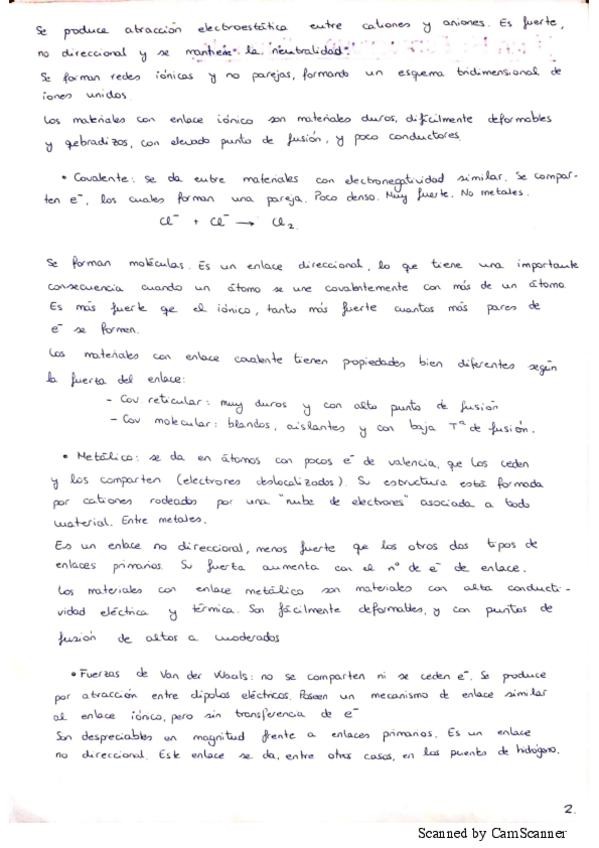 Se produce atracción electroestática entre cationes y aniones. Es fuerte,
no direccional y se mantiene la "neutralidad".
Se forman redes iónicas y no parejas, formando un esquema tridimensional de
iones unidos.
Los materiales con enlace iónico son materiales duros, difícilmente deformables
y qebradizos, con elevado punto de fusión, y poco conductores.
• Covalente: se da entre materiales con electronegatividad similar. Se compar-
ten e⁻, los cuales forman una pareja. Poco denso. Muy fuerte. No metales.
Cl⁻ + Cl⁻ → Cl₂
Se forman moléculas. Es un enlace direccional, lo que tiene una importante
consecuencia cuando un átomo se une covalntemente con más de un átomo.
Es más fuerte qe el iónico, tanto más fuerte cuantos más pares de
e⁻ se formen.
Los materiales con enlace covalente tienen propiedades bien diferentes según
la fuerza del enlace:
- Cov reticular: muy duros y con alto punto de fusión
- Cov molecular: blandos, aislantes y con baja Tª de fusión.
• Metálico: se da en átomos con pocos e⁻ de valencia, que los ceden
y los comparten (electrones deslocalizados). Su estructura está formada
por cationes rodeados por una "nube de electrones" asociada a todo
material. Entre metales.
Es un enlace no direccional, menos fuerte que los otros dos tipos de
enlaces primarios. Su fuerza aumenta con el nº de e⁻ de enlace.
Los materiales con enlace metálico son materiales con alta conducti-
vidad eléctrica y térmica. Son fácilmente deformables, y con puntos de
fusión de altos a moderados
• Fuerzas de Van der Waals: no se comparten ni se ceden e⁻. Se produce
por atracción entre dipolos eléctricos. Poseen un mecanismo de enlace similar
al enlace iónico, pero sin transferencia de e⁻
Son despreciables en magnitud frente a enlaces primarios. Es un enlace
no direccional. Este enlace se da, entre otras cosas, en los puentes de hidógeno.
2.
Scanned by CamScanner